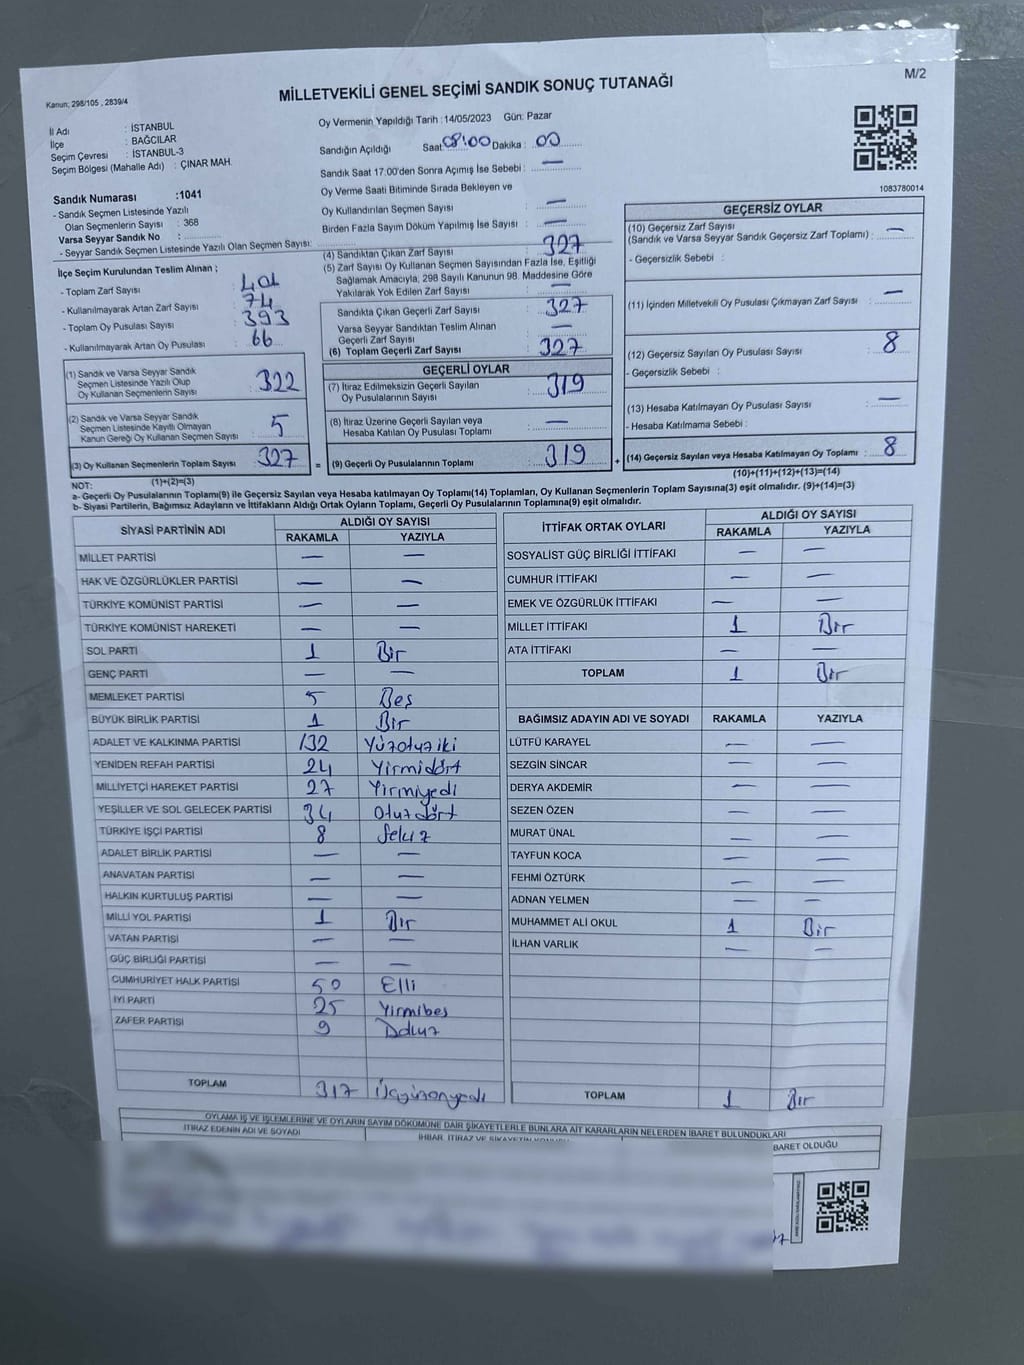 M/2
Kanun: 298/105 , 2839/4
MİLLETVEKİLİ GENEL SEÇİMİ SANDIK SONUÇ TUTANAĞI
İl Adı : İSTANBUL
İlçe : BAĞCILAR
Seçim Çevresi : İSTANBUL-3
Seçim Bölgesi (Mahalle Adı) : ÇINAR MAH.
Sandık Numarası :1041
- Sandık Seçmen Listesinde Yazılı
Olan Seçmenlerin Sayısı : 368
Varsa Seyyar Sandık No :
- Seyyar Sandık Seçmen Listesinde Yazılı Olan Seçmen Sayısı:
Oy Vermenin Yapıldığı Tarih :14/05/2023 Gün: Pazar
Sandığın Açıldığı Saat: 08:00 Dakika : 00
Sandık Saat 17:00'den Sonra Açımış İse Sebebi : —
Oy Verme Saati Bitiminde Sırada Bekleyen ve
Oy Kullandırılan Seçmen Sayısı —
Birden Fazla Sayım Döküm Yapılmış İse Sayısı : —
1083780014
İlçe Seçim Kurulundan Teslim Alınan ;
- Toplam Zarf Sayısı : 401
- Kullanılmayarak Artan Zarf Sayısı : 74
- Toplam Oy Pusulası Sayısı : 393
- Kullanılmayarak Artan Oy Pusulası : 66
(1) Sandık ve Varsa Seyyar Sandık
Seçmen Listesinde Yazılı Olup
Oy Kullanan Seçmenlerin Sayısı : 322
(2) Sandık ve Varsa Seyyar Sandık
Seçmen Listesinde Kayıtlı Olmayan
Kanun Gereği Oy Kullanan Seçmen Sayısı : 5
(3) Oy Kullanan Seçmenlerin Toplam Sayısı : 327
(1)+(2)=(3)
(4) Sandıktan Çıkan Zarf Sayısı : 327
(5) Zarf Sayısı Oy Kullanan Seçmen Sayısından Fazla İse, Eşitliği
Sağlamak Amacıyla, 298 Sayılı Kanunun 98. Maddesine Göre
Yakılarak Yok Edilen Zarf Sayısı : —
Sandıkta Çıkan Geçerli Zarf Sayısı : 327
Varsa Seyyar Sandıktan Teslim Alınan
Geçerli Zarf Sayısı : —
(6) Toplam Geçerli Zarf Sayısı : 327
GEÇERLİ OYLAR
(7) İtiraz Edilmeksizin Geçerli Sayılan
Oy Pusulalarının Sayısı : 319
(8) İtiraz Üzerine Geçerli Sayılan veya
Hesaba Katılan Oy Pusulası Toplamı : —
= (9) Geçerli Oy Pusulalarının Toplamı : 319 +
GEÇERSİZ OYLAR
(10) Geçersiz Zarf Sayısı
(Sandık ve Varsa Seyyar Sandık Geçersiz Zarf Toplamı) : —
- Geçersizlik Sebebi :
(11) İçinden Milletvekili Oy Pusulası Çıkmayan Zarf Sayısı : —
(12) Geçersiz Sayılan Oy Pusulası Sayısı : 8
- Geçersizlik Sebebi :
(13) Hesaba Katılmayan Oy Pusulası Sayısı : —
- Hesaba Katılmama Sebebi :
(14) Geçersiz Sayılan veya Hesaba Katılmayan Oy Toplamı : 8
(10)+(11)+(12)+(13)=(14)
NOT:
a- Geçerli Oy Pusulalarının Toplamı(9) ile Geçersiz Sayılan veya Hesaba katılmayan Oy Toplamı(14) Toplamları, Oy Kullanan Seçmenlerin Toplam Sayısına(3) eşit olmalıdır. (9)+(14)=(3)
b- Siyasi Partilerin, Bağımsız Adayların ve İttifakların Aldığı Ortak Oyların Toplamı, Geçerli Oy Pusulalarının Toplamına(9) eşit olmalıdır.
SİYASİ PARTİNİN ADI ALDIĞI OY SAYISI
RAKAMLA YAZIYLA
MİLLET PARTİSİ — —
HAK VE ÖZGÜRLÜKLER PARTİSİ — —
TÜRKİYE KOMÜNİST PARTİSİ — —
TÜRKİYE KOMÜNİST HAREKETİ — —
SOL PARTİ 1 Bir
GENÇ PARTİ — —
MEMLEKET PARTİSİ 5 Beş
BÜYÜK BİRLİK PARTİSİ 1 Bir
ADALET VE KALKINMA PARTİSİ 132 Yüzotuziki
YENİDEN REFAH PARTİSİ 24 Yirmidört
MİLLİYETÇİ HAREKET PARTİSİ 27 Yirmiyedi
YEŞİLLER VE SOL GELECEK PARTİSİ 34 Otuzdört
TÜRKİYE İŞÇİ PARTİSİ 8 Sekiz
ADALET BİRLİK PARTİSİ — —
ANAVATAN PARTİSİ — —
HALKIN KURTULUŞ PARTİSİ — —
MİLLİ YOL PARTİSİ 1 Bir
VATAN PARTİSİ — —
GÜÇ BİRLİĞİ PARTİSİ — —
CUMHURİYET HALK PARTİSİ 50 Elli
İYİ PARTİ 25 Yirmibeş
ZAFER PARTİSİ 9 Dokuz
TOPLAM 317 Üçyüzonyedi
İTTİFAK ORTAK OYLARI ALDIĞI OY SAYISI
RAKAMLA YAZIYLA
SOSYALİST GÜÇ BİRLİĞİ İTTİFAKI — —
CUMHUR İTTİFAKI — —
EMEK VE ÖZGÜRLÜK İTTİFAKI — —
MİLLET İTTİFAKI 1 Bir
ATA İTTİFAKI — —
TOPLAM 1 Bir
BAĞIMSIZ ADAYIN ADI VE SOYADI RAKAMLA YAZIYLA
LÜTFÜ KARAYEL — —
SEZGİN SİNCAR — —
DERYA AKDEMİR — —
SEZEN ÖZEN — —
MURAT ÜNAL — —
TAYFUN KOCA — —
FEHMİ ÖZTÜRK — —
ADNAN YELMEN — —
MUHAMMET ALİ OKUL 1 Bir
İLHAN VARLIK — —
TOPLAM 1 Bir
OYLAMA İŞ VE İŞLEMLERİNE VE OYLARIN SAYIM DÖKÜMÜNE DAİR ŞİKAYETLERLE BUNLARA AİT KARARLARIN NELERDEN İBARET BULUNDUKLARI
İTİRAZ EDENİN ADI VE SOYADI
İHBAR, İTİRAZ VE ŞİKAYETİN KONUSU
BARET OLDUĞU